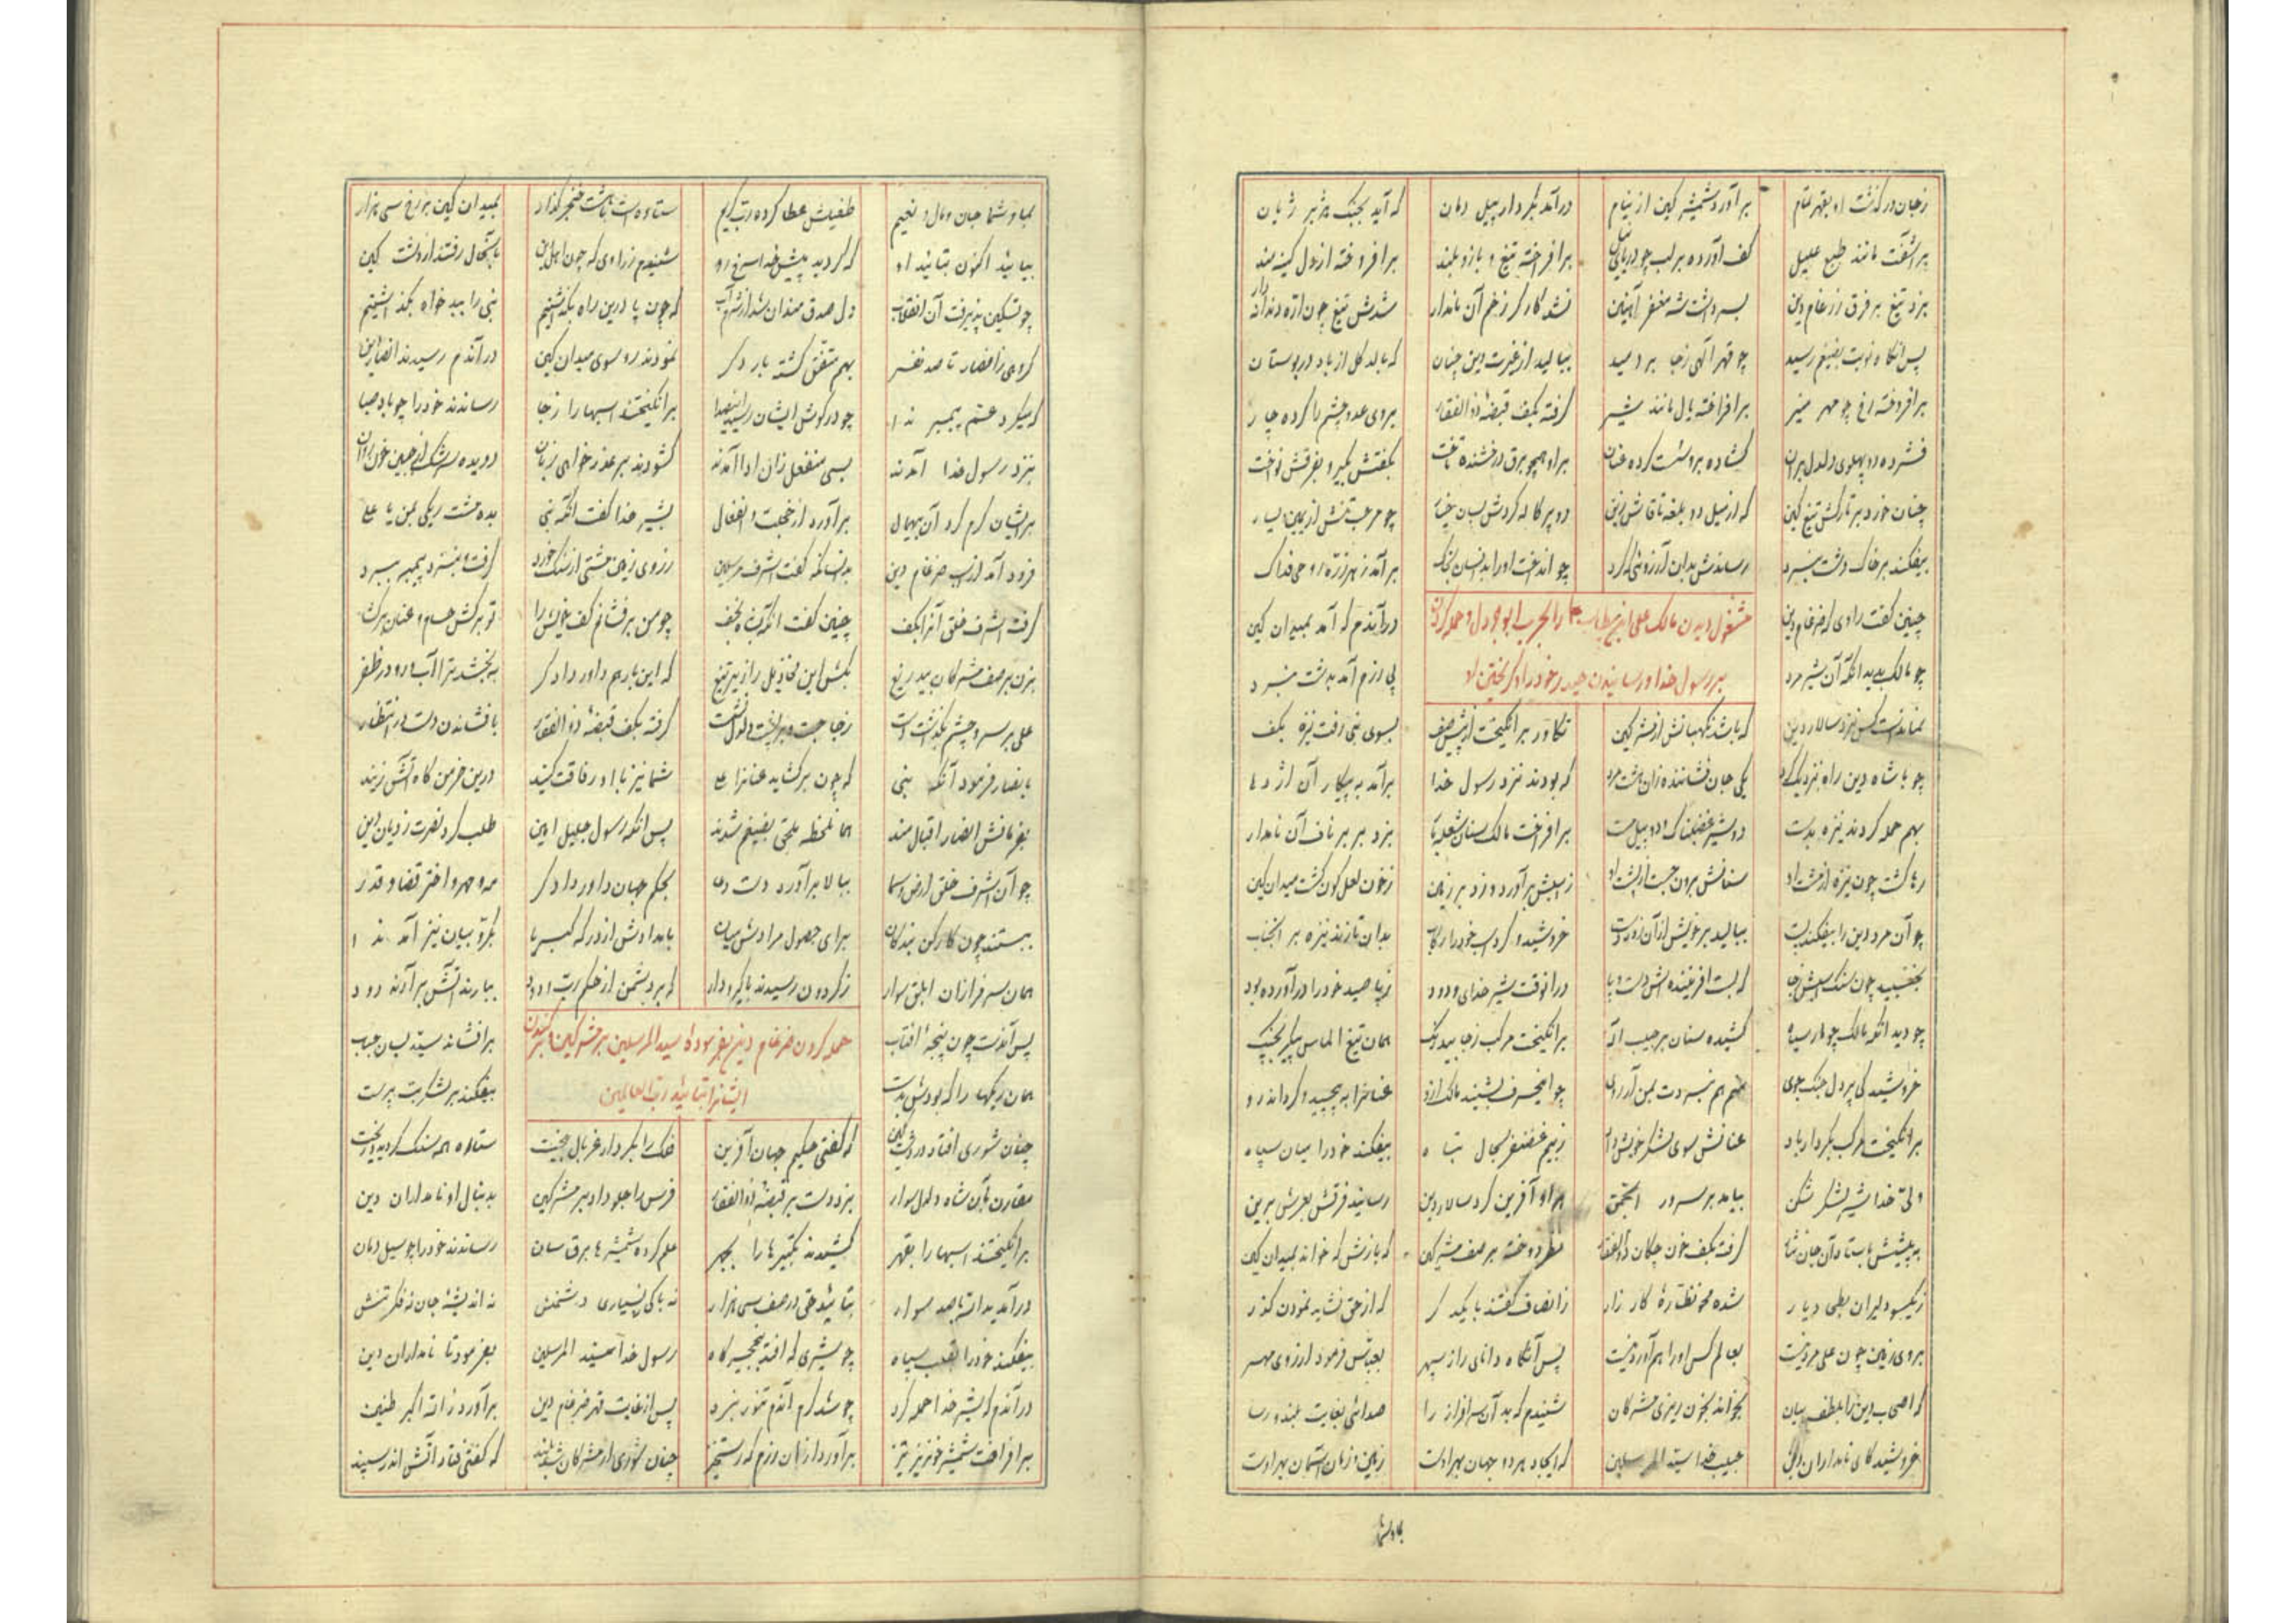 زجان در گذشت او بقهر تمام برآورد شمشیر کین از نیام درآمد بکردار پیل دمان که آید بجنک هژبر ژیان
برآشفت مانند طبع علیل کف آورده بر لب چو دریای نیل برافراخته تیغ و بازو بلند برافروخته از دل کینه مند
بزد تیغ بر فرق ضرغام دین بسر داشت شه مغفر آهنین نشد کارگر زخم آن نامدار شدش تیغ چون اره دندانه دار
پس آنکاه نوبت بضیغم رسید چو قهر الهی زجا بر دمید ببالید از غیرت دین چنان که بالد کل از باد در بوستان
برافروخته رخ چو مهر منیر برافراخته یال مانند شیر کرفته بکف قبضهٔ ذوالفقار بروی عدو چشم کرده چار
فشرده دو پهلوی دلدل بران کشاده برو دست کرده عنان براو همچو برق درخشنده تاخت بکفتش بکیر و بفرقش نواخت
چنان خورد بر تارکش تیغ کین که از میل دو بلغه تا قاش زین دو پرکاله کردش بسان خیار چو مرحب تنش از یمین یسار
بیفکند بر خاک دشت نبرد رساندش بدان آرزوئی که کرد چو انداخت او را بدینسان بخاک برآمد ز هر ذره روحی فداک
مشغول دیدن مالک علی ابن ابیطالب را بحرب ابوجرول و حمله کردن
بر رسول خدا و رسانیدن حیدر خود را و کریختن او
چنین کفت راوی که ضرغام دین درآندم که آمد بمیدان کین
چو مالک بدید آنکه آن شیر مرد پی رزم آمد بدشت نبرد
نماندست کس نزد سالار دین که باشد نکهبانش از مشرکین تکاور برانکیخت از پیش صف بسوی نبی رفت نیزه بکف
چو با شاه دین راه نزدیک کرد یکی جان فشاننده زان هشت مرد که بودند نزد رسول خدا برآمد به پیکار آن اژدها
بهم حمله کردند نیزه بدست دو شیر غضبناک دو پیل مست برافراخت مالک سنان بزد بر بر ناف آن نامدار
رها کشت چون نیزه از شست او سنانش برون جست از پشت او ز اسبش برآورد و زد بر زمین ز خون لعل کون کشت میدان کین
چو آن مرد دین را بیفکند پست ببالید بر خویش از آن خروشید و کرد بدان تا زند نیزه بر آنجناب
بجنبید چون سنک اسبش زجا که بست آفریننده اش دست و پا درانوقت شیر خدای ودود ز پا صید خود را درآورده بود
چو دید آنکه مالک چو مار سیاه کشیده سنان بر حبیب اله برانکیخت مرکب زجا بیدرنک همان تیغ الماس پیکر بچنک
خروشید کی پر دل جنک جوی منم هم نبردت بمن آر روی چو این حرف بشنید مالک ازو عنانرا به پیچید و کرداند رو
برانکیخت مرکب بکردار باد عنانش سوی لشکر خویش داد ز بیم غضنفر بحال تباه بیفکند خود را میان سپاه
ولی خدا شیر لشکر شکن بیامد بر سرور انجمن بر او آفرین کرد سالار دین رسانید فرقش بعرش برین
به پیشش باستاد آن جان نثار کرفت بکف خون چکان ذوالفقار نظر دوخته بر صف مشرکین که بازش که خواند بمیدان کین
ز یکسو دلیران بطحی دیار شده محو نظارهٔ کار زار ز انصاف کفتند با یکد کر که از حق نشاید نمودن کذر
بروی زمین چون علی مرد نیست بعالم کس او را هم آورد نیست پس آنکاه دانای راز سپهر بعباس فرمود از روی مهر
که اصحاب دین را بلطف بیان بخواند بخون ریزی مشرکان شنیدم که بد آن سرافراز را صدائی بغایت بلند و رسا
خروشید کای نامداران دین حبیب خدا سید المرسلین که ایجاد هر دو جهان بهر اوست زمین و زمان آسمان بهر اوست
بما و شما
بما و شما جان و مال و نعیم طفیلش عطا کرده رب کریم ستاده است با هشت خنجر کذار بمیدان کین بر رخ سی هزار
بیائید اکنون بتائید او که کردید پیش خدا سرخ رو شنیدم ز راوی که چون اهل دین باین حال رفتند از دشت کین
چو تسکین پذیرفت آن انقلاب دل صدق مندان شد از شرم آب که چون پا درین راه بکذاشتیم نبی را ببد خواه بکذاشتیم
کروهی ز انصار تا صد نفر بهم متفق کشته بار دکر نمودند رو سوی میدان کین درآندم رسیدند انصار دین
که میکرد عم پیمبر ندا چو در کوش ایشان رسید این صدا برانکیختند اسبها را زجا رساندند خود را چو باد صبا
بنزد رسول خدا آمدند بسی منفعل زان ادا آمدند کشودند بر عذر خواهی زبان دویده سرشک از جبین خون روان
بر ایشان کرم کرد آن بیهمال برآورد از خجلت و انفعال بشیر خدا کفت آنکه نبی بده مشت ریکی بمن یا علی
فرود آمد از اسب ضرغام دین بدانسانکه کفت اشرف مرسلین ز روی زمین مشتی از سنک خورد کرفت و بنزد پیمبر ببرد
کرفت اشرف خلق آنرا بکف چنین کفت آنکه بشاه نجف چو من برفشانم کف خویش را تو برکش حسام و عنان
بزن بر صف مشرکان بیدریغ بکش این مخاذیل را زیر تیغ که این بار هم داور داد کر به بخشد ترا آب رو در ظفر
علی بر سر و چشم بکذشت دست ز جا جست و بر پشت دلدل نشست کرفته بکف قبضهٔ ذوالفقار با فشاندن دست در انتظار
بانصار فرمود آنکه نبی که چون برکشاید عنانرا علی شما نیز با او رفاقت کنید درین خرمن کاه آتش زنید
بفرمانش انصار اقبال مند همان لحظه ملحق بضیغم شدند پس آنکه رسول جلیل امین طلب کرد نصرت ز دیان دین
چو آن اشرف خلق ارض و سما ببالا برآورد دست دعا بحکم جهان داور دادکر مه و مهر و اختر قضا و قدر
ببستند چون کارکن بندکان برای حصول مرادش میان بامدادش از درکه کبریا بکروبیان نیز آمد ندا
همان سرفرازان ابلق سوار ز کردون رسیدند با کیر و دار که بر دشمن از حکم رب ودود ببارند آتش برآرند دود
حمله کردن ضرغام دین بفرمودهٔ سید المرسلین بر مشرکین و
ایشانرا بتائید رب العالمین
پس آندست چون پنجهٔ افتاب برافشاند سید بسان حباب
همان ریکها را که بودش بدست بیفکند بر لشکر بت پرست
چنان شوری افتاد در دشت کین که کفتی حکیم جهان آفرین فلک را بکردار غربال بیخت ستاره همه سنک کردید و ریخت
مقارن بآن شاه دلدل سوار بزد دست بر قبضهٔ ذوالفقار فرس را جلو داد بر مشرکین بدنبال او نامداران دین
برانکیختند اسبها را بقهر کشیدند تکبیرها را بجهر علم کرده شمشیرها برق سان رساندند خود را چو سیل دمان
درآمد بدانسان بصد سوار بتائید حق در صف سی هزار نه باکی ز بسیاری دشمنش نه اندیشهٔ جان نه فکر تنش
بیفکند خود را بقلب سپاه چو شیری که افتد بنخجیر کاه رسول خدا سید المرسلین بفرمود تا نامداران دین
درآندم که شیر خدا حمله کرد چو شد کرم آندم تنور نبرد پس از غایت قهر ضرغام دین برآورد ز الله اکبر طنین
برافراخت شمشیر خونریز تیز برآورد ازان رزم که رستخیز چنان شوری از مشرکان شد بلند که کفتی فتاد آتش اندر سپند